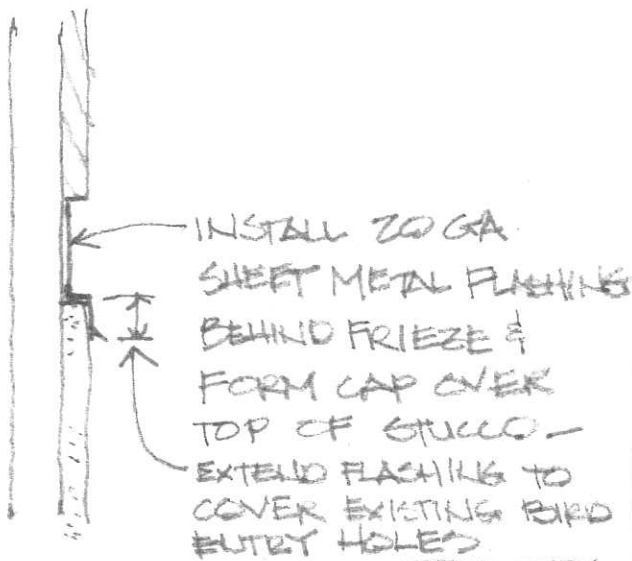 INSTALL 20 GA
SHEET METAL FLASHING
BEHIND FRIEZE &
FORM CAP OVER
TOP OF STUCCO -
EXTEND FLASHING TO
COVER EXISTING BIRD
ENTRY HOLES